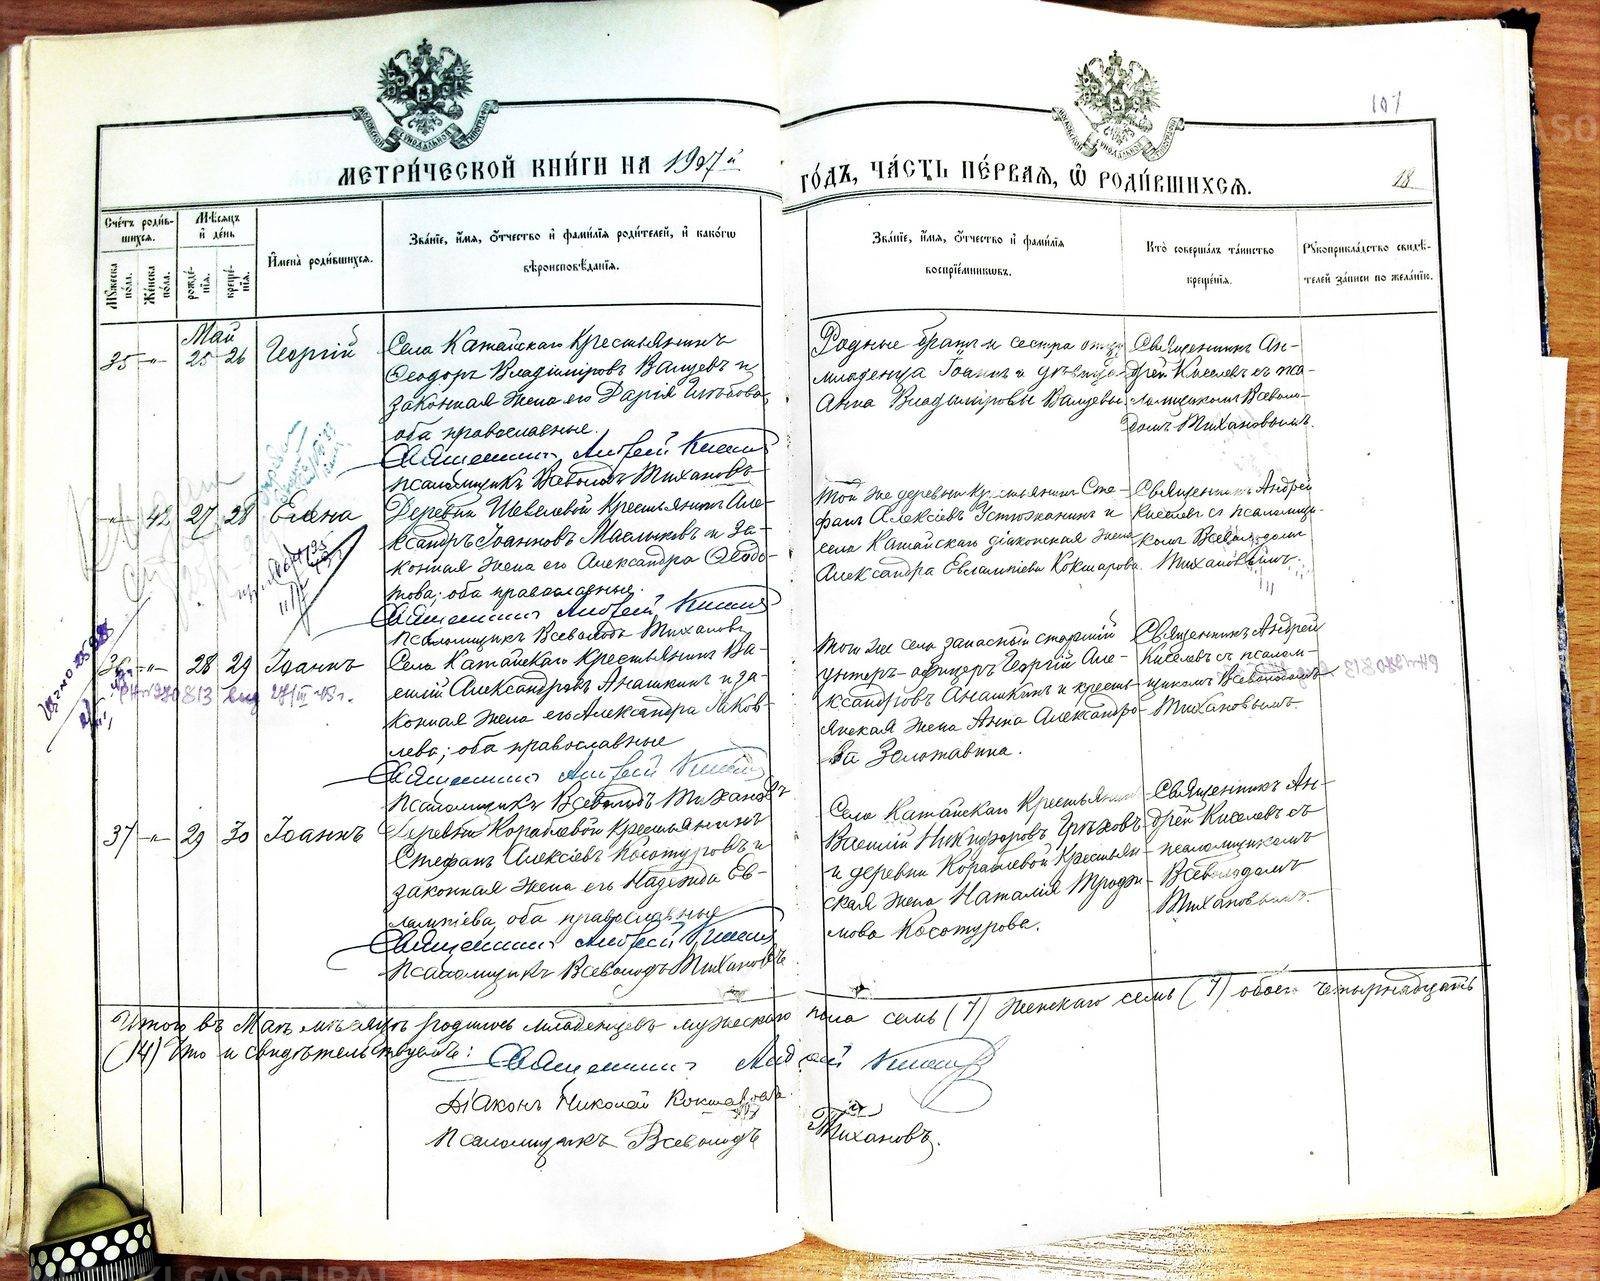 107
МОСКОВСКОЙ СѴНОДАЛЬНОЙ ТИПОГРАФІИ
МЕТРИ́ЧЕСКОЙ КНИ́ГИ НА 1907й ГО́ДЪ, ЧА́СТЬ ПЕ́РВАЯ, Ѽ РОДИ́ВШИХСЯ.
18
Сче́тъ роди́в-
шихся.
Мѣ́сяцъ
и҆ де́нь
И҆мена̀ роди́вшихся.
Зва́нїе, и҆́мя, ѻ҆́тчество и҆ фами́лїя роди́телей, и҆ како́гѡ
вѣроисповѣ́данїя.
Зва́нїе, и҆́мя, ѻ҆́тчество и҆ фами́лїя
воспрїе́мниковъ.
Кто̀ соверша́лъ та́инство
креще́нїя.
Рꙋкоприкла́дство свидѣ́-
телей за́писи по жела́нїю.
Мꙋ́жеска
по́ла.
Же́нска
по́ла.
рожде́-
нїя.
креще́-
нїя.
Май
35 -"- 25 26 Георгій
Села Катайскаго Крестьянинъ
Ѳеодоръ Владиміровъ Ванцевъ и
законная жена его Дарія Глѣбова,
оба православные.
Священникъ Андрей Киселевъ
Псаломщикъ Всеволодъ Тихановъ
Родные братъ и сестра отца
младенца Іоаннъ и дѣвица
Анна Владиміровы Ванцевы.
Священникъ Ан-
дрей Киселевъ съ пса-
ломщикомъ Всеволо-
домъ Тихановымъ.
-"- 42 27 28 Елена
Деревни Шевелевой Крестьянинъ Але-
ксандръ Іоанновъ Маслыковъ и за-
конная жена его Александра Ѳедо-
това; оба православные.
Священникъ Андрей Киселевъ
Псаломщикъ Всеволодъ Тихановъ
Той же деревни Крестьянинъ Сте-
фанъ Алексіевъ Устюжанинъ и
села Катайскаго діаконская жена
Александра Евлампіева Кокшарова.
Священникъ Андрей
Киселевъ съ псаломщи-
комъ Всеволодомъ
Тихановымъ.
36 -"- 28 29 Іоаннъ
Села Катайскаго Крестьянинъ Ва-
силій Александровъ Анашкинъ и за-
конная жена его Александра Іаков-
лева; оба православные
Священникъ Андрей Киселевъ
Псаломщикъ Всеволодъ Тихановъ
Того же села запасный старшій
унтеръ-офицеръ Георгій Але-
ксандровъ Анашкинъ и кресть-
янская жена Анна Александро-
ва Золотавина.
Священникъ Андрей
Киселевъ съ псалом-
щикомъ Всеволодомъ
Тихановымъ
27/III 43 г.
37 -"- 29 30 Іоаннъ
Деревни Кораблевой Крестьянинъ
Стефанъ Алексіевъ Косотуровъ и
законная жена его Надежда Ев-
лампіева, оба православные
Священникъ Андрей Киселевъ
Псаломщикъ Всеволодъ Тихановъ
Села Катайскаго Крестьянинъ
Василій Никифоровъ Грѣховъ
и деревни Кораблевой Крестьян-
ская жена Наталія Трофи-
мова Косотурова.
Священникъ Ан-
дрей Киселевъ съ
псаломщикомъ
Всеволодомъ
Тихановымъ.
Итого въ Маѣ мѣсяцѣ родилось младенцевъ мужескаго пола семь (7) женскаго семь (7) обоего четырнадцать
(14) Что и свидѣтельствуемъ:
Священникъ Андрей Киселевъ
Діаконъ Николай Кокшаровъ
Псаломщикъ Всеволодъ Тихановъ.